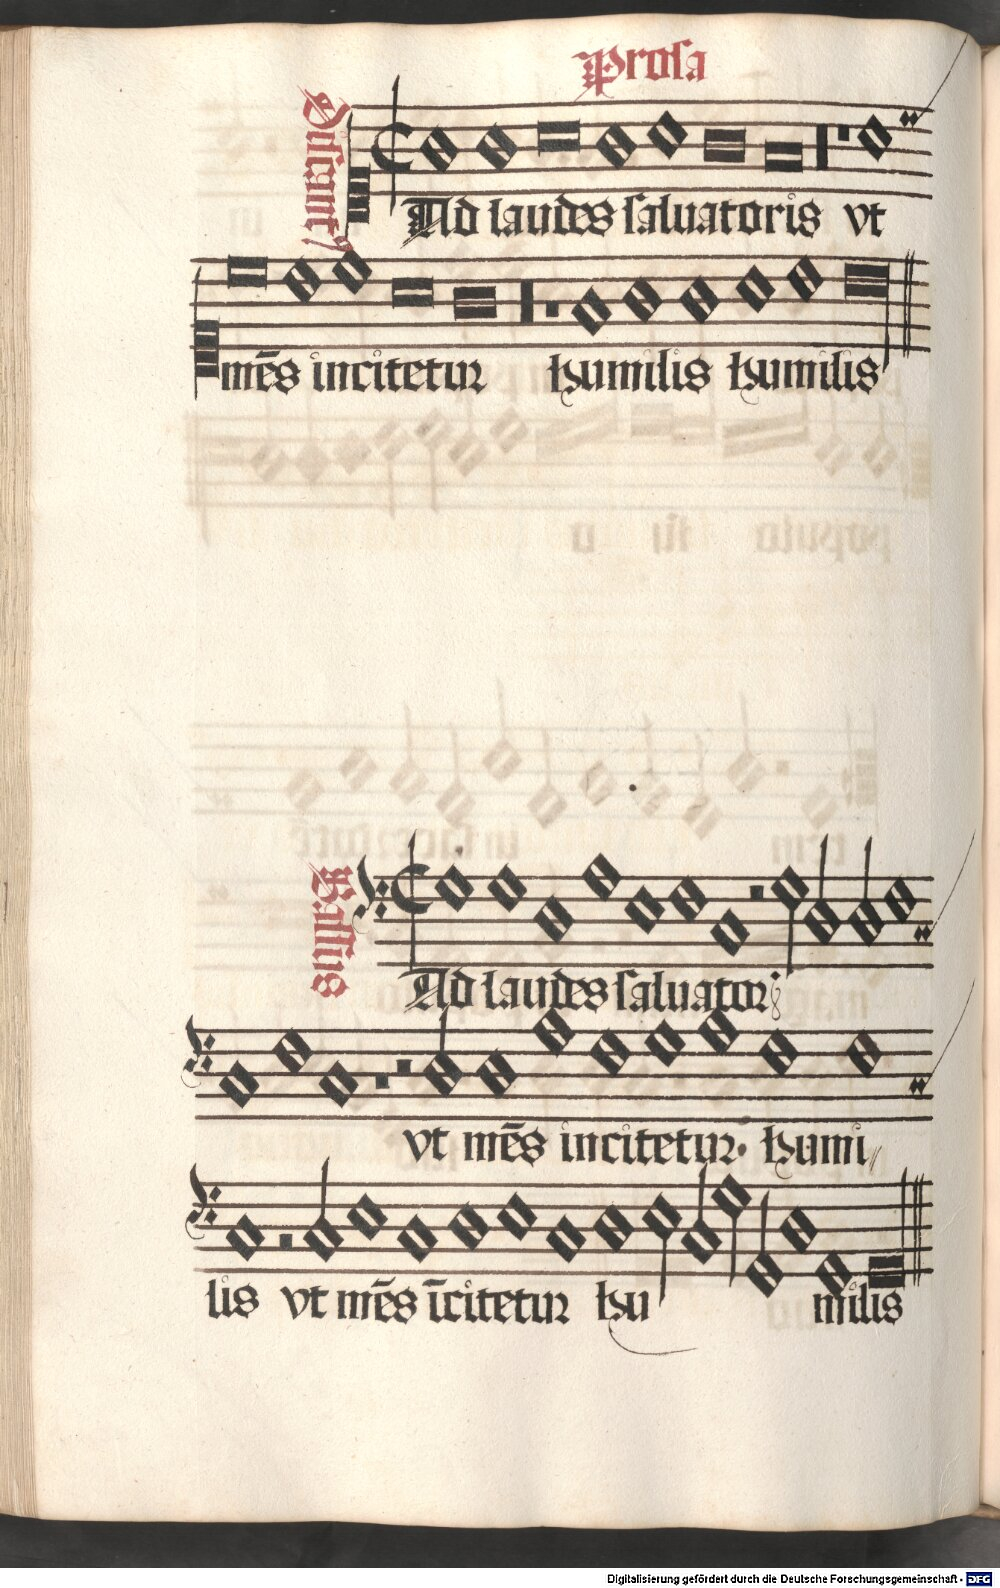 Prosa
Discantus
Ad laudes saluatoris vt
mēs incitetur humilis humilis
Bassus
Ad laudes saluatoris
vt mēs incitetur. humi
lis vt mēs īcitetur hu milis
Digitalisierung gefördert durch die Deutsche Forschungsgemeinschaft - DFG